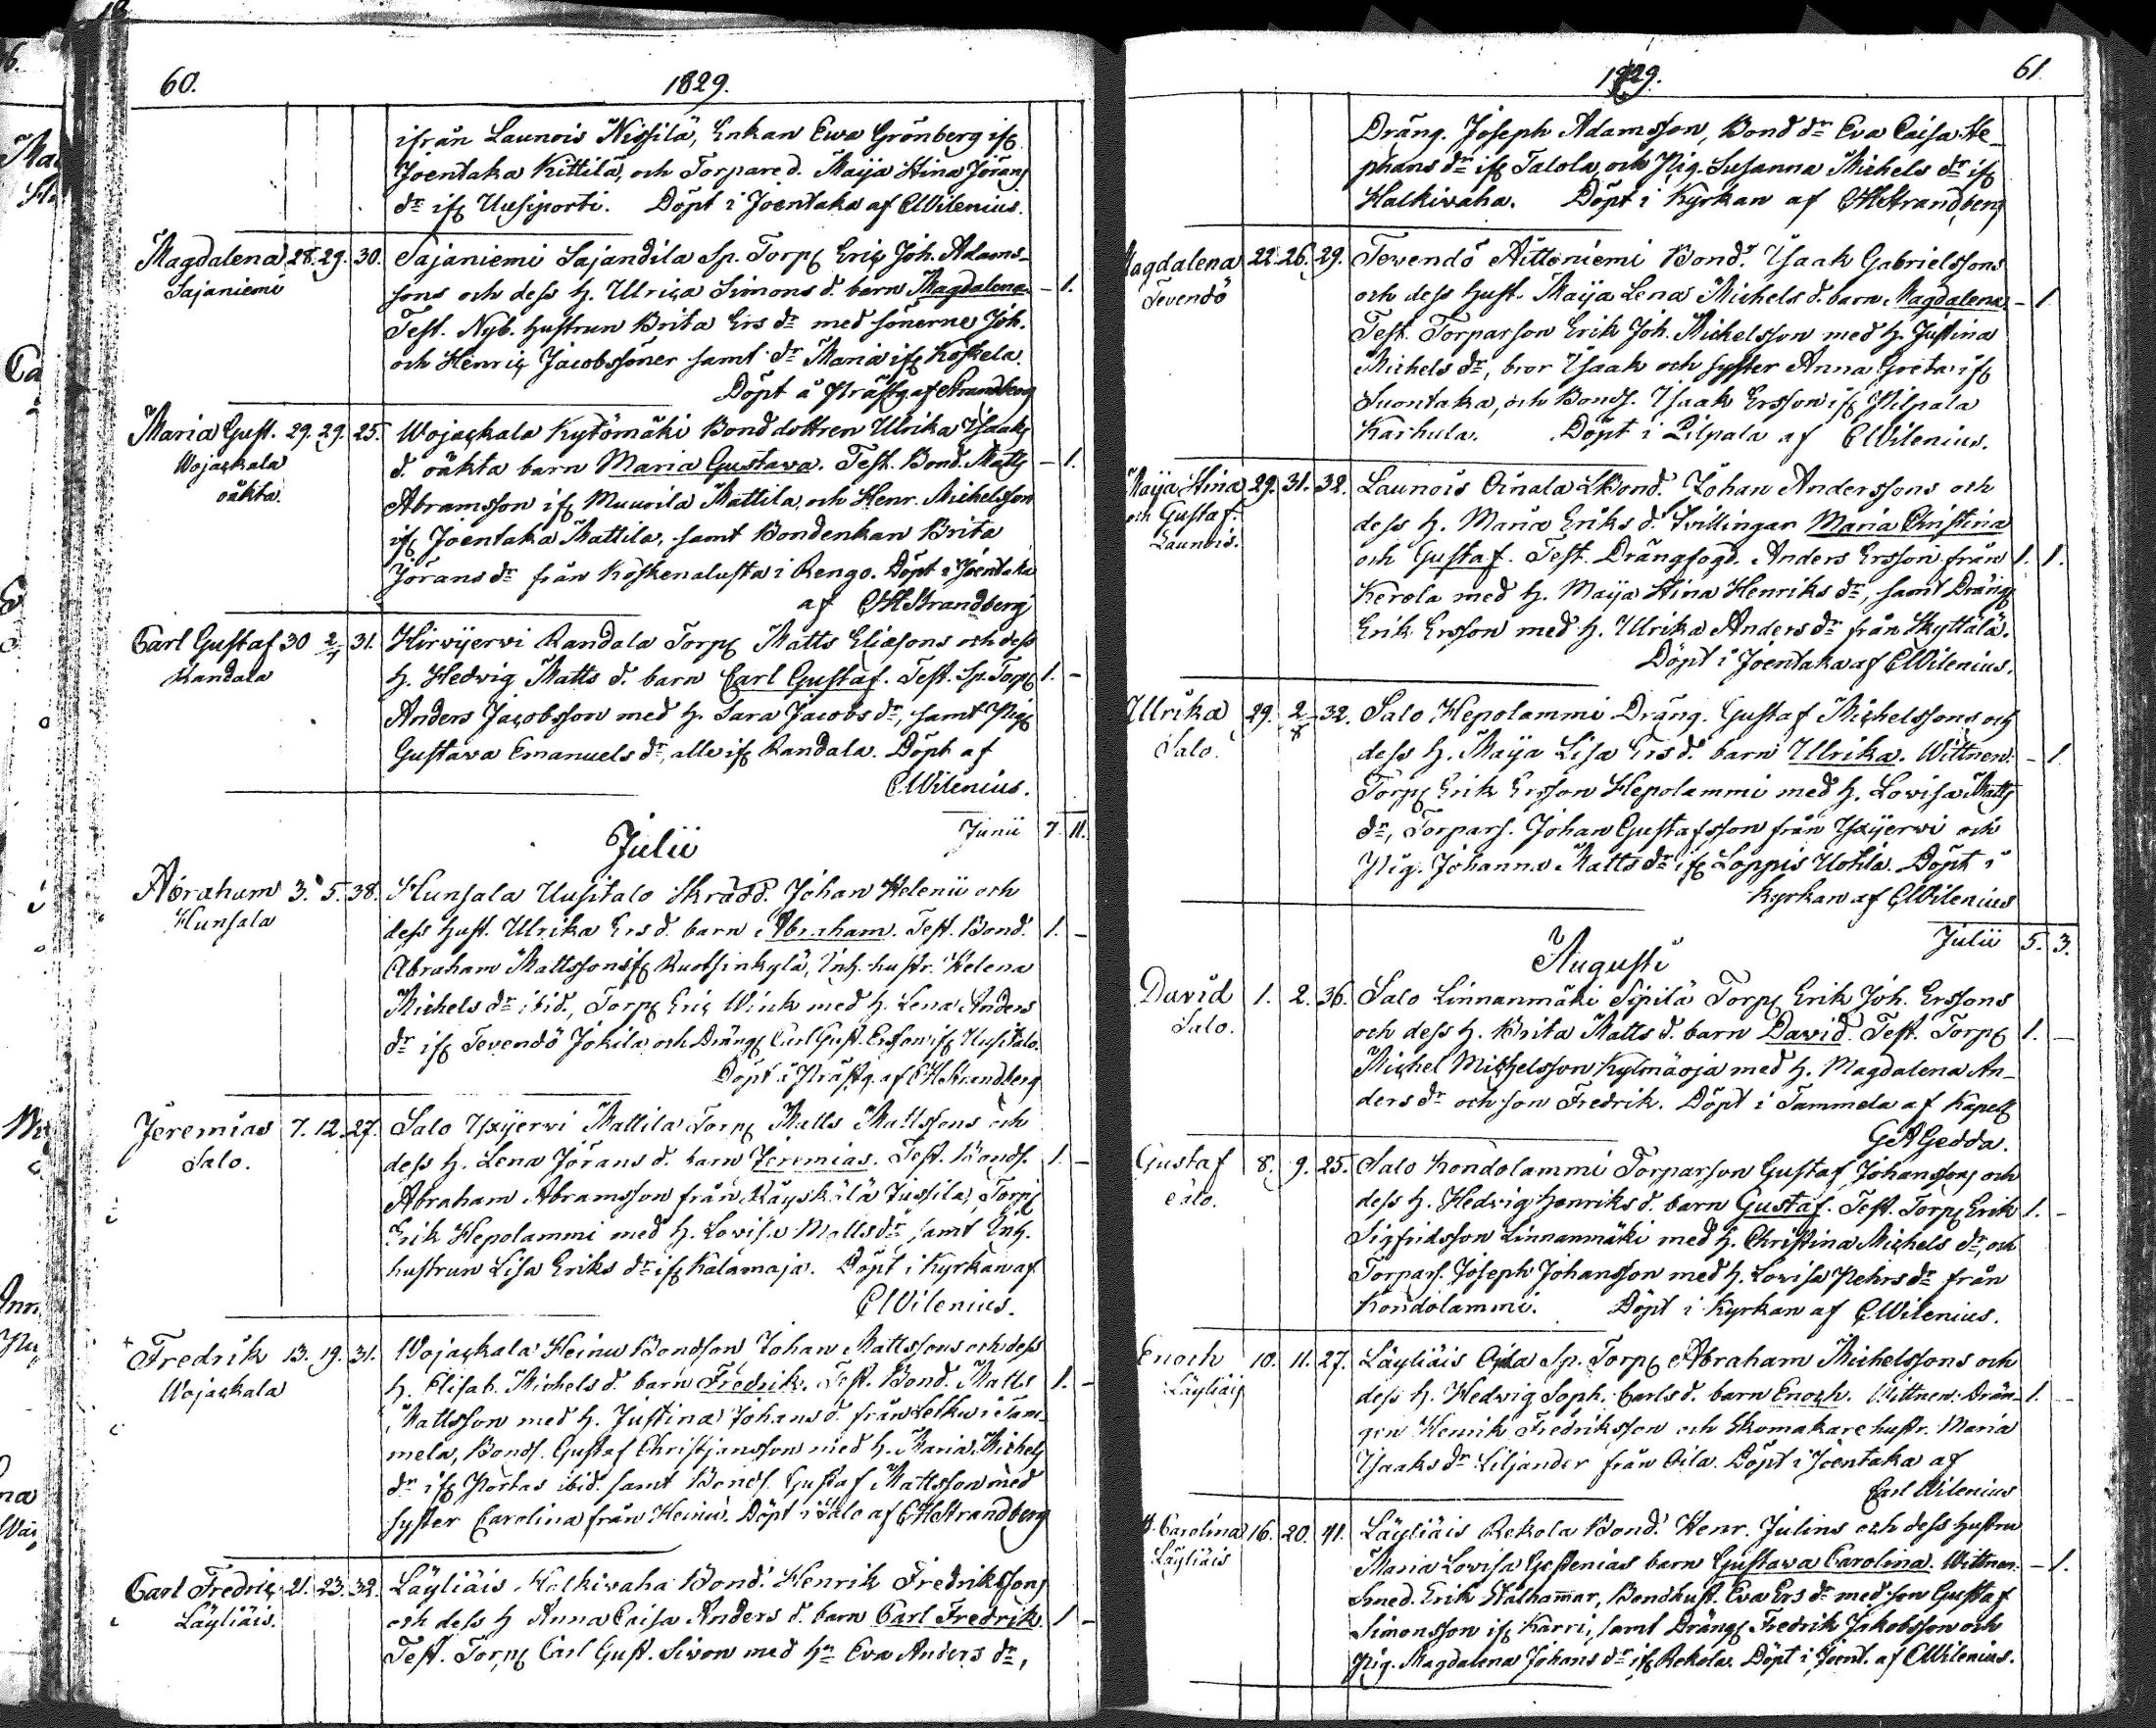 60. 1829.
ifrån Launois Nissilä, Enkan Ewa Grönberg ifr
Joentaka Kittilä, och Torpared. Maija Stina Jörans
dr ifr Uusiporti. Döpt i Joentaka af CWilenius.
Magdalena 28. 29. 30. Sajaniemi Sajandila Sp. Torp. Eric Joh. Adams-
Sajaniemi sons och dess h. Ulrica Simons d. barn Magdalena. - 1.
Test. Nyb. hustrun Brita Ers dr med sönerne Joh.
och Henric Jacobssöner samt dr Maria ifr Koskela.
Döpt å Prästg. af Strandberg
Maria Gust. 29. 29. 25. Wojackala Kytömäki Bonddottren Ulrika Isaaks
Wojackala d. oäkta barn Maria Gustava. Test. Bond. Matts - 1.
oäkta. Abramsson ifr Muurila Mattila, och Henr. Michelsson
ifr Joentaka Mattila, samt Bondenkan Brita
Jörans dr från Koskenalusta i Rengo. Döpt i Joentaka
af CHStrandberg
Carl Gustaf 30 2/7 31. Hirvijerwi Randala Torp. Matts Eliæsons och dess
Randala h. Hedvig Matts d. barn Carl Gustaf. Test. Sp. Torp. 1. -
Anders Jacobsson med h. Sara Jacobs dr, samt Pig.
Gustava Emanuels dr, alle ifr Randala. Döpt af
CWilenius.
Junii 7. 11.
Julii
Abraham 3. 5. 38. Hunsala Uusitalo Skrädd. Johan Helenii och
Hunsala dess hust. Ulrika Ers d. barn Abraham. Test. Bond. 1. -
Abraham Mattsson ifr Ruotsinkylä, Inh. hustr. Helena
Michels dr ibid., Torp. Eric Wink med h. Lena Anders
dr ifr Tevendö Jokila och Dräng. Carl Gust. Ersson ifr Uusitalo.
Döpt i Prästg. af CHStrandberg
Jeremias 7. 12. 27. Salo Yxijerwi Mattila Torp. Matts Mattssons och
Salo. dess h. Lena Jörans d. barn Jeremias. Test. Bonds. 1. -
Abraham Abramsson från Räyskälä Jussila, Torp.
Erik Hepolammi med h. Lovisa Matts dr samt Inh.
hustrun Lisa Eriks dr ifr Kalamaja. Döpt i Kyrkan af
CWilenius.
Fredrik 13. 19. 31. Wojackala Heinu Bondson Johan Mattssons och dess
Wojackala h. Elisab. Michels d. barn Fredrik. Test. Bond. Matts 1. -
Mattsson med h. Justina Johans d. från Letku i Tam-
mela, Bonds. Gustaf Christjansson med h. Maria Michels
dr ifr Portas ibid. samt Bonds. Gustaf Mattsson med
syster Carolina från Heinu. Döpt i Salo af CHStrandberg
Carl Fredric 21. 23. 32. Läyliäis Halkivaha Bond. Henrik Fredrikssons
Läyliäis. och dess h Anna Caisa Anders d. barn Carl Fredrik. 1 -
Test. Torp. Carl Gust. Sivon med hn Eva Anders dr,
1829. 61
Dräng. Joseph Adamsson, Bond dr Eva Caisa Ste-
phans dr ifr Talola, och Pig. Susanna Michels dr ifr
Halkivaha. Döpt i Kyrkan af CHStrandberg
Magdalena 22. 26. 29. Tevendö Aittoniemi Bond. Isaak Gabrielssons
Tevendö och dess hust. Maija Lena Michels d. barn Magdalena. - 1
Test. Torparson Erik Joh. Michelsson med h. Justina
Michels dr, bror Isaak och syster Anna Greta ifr
Suontaka, och Bonds. Isaak Ersson ifr Pilpala
Karhula. Döpt i Pilpala af CWilenius.
Maija Stina 29. 31. 32. Launois Oinala Bond. Johan Anderssons och
och Gustaf. dess h. Maria Eriks d. tvillingar Maria Christina
Launois. och Gustaf. Test. Drängfogd. Anders Ersson från 1. 1.
Kerola med h. Maija Stina Henriks dr, samt Dräng.
Erik Ersson med h. Ulrika Anders dr från Skyttälä.
Döpt i Joentaka af CWilenius.
Ulrika 29. 2/8 32. Salo Hepolammi Dräng. Gustaf Michelssons och
Salo. dess h. Maija Lisa Ers d. barn Ulrika. Wittnen: - 1.
Torp. Erik Ersson Hepolammi med h. Lovisa Matts
dr, Torpars. Johan Gustafsson från Yxijerwi och
Pig. Johanna Matts dr ifr Loppis Uotila. Döpt i
Kyrkan af CWilenius
Julii 5. 3.
Augusti
David 1. 2. 36. Salo Linnanmäki Sipilä Torp. Erik Joh. Erssons
Salo. och dess h. Brita Matts d. barn David. Test. Torp. 1. -
Michel Michelsson Kylmäoja med h. Magdalena An-
ders dr och son Fredrik. Döpt i Tammela af Kapell.
GAGedda.
Gustaf 8. 9. 25. Salo Kondolammi Torparson Gustaf Johanssons och
Salo. dess h. Hedvig Henriks d. barn Gustaf. Test. Torp. Erik 1. -
Sigfridsson Linnanmäki med h. Christina Michels dr, och
Torpars. Joseph Johansson med h. Lovisa Pehrs dr från
Kondolammi. Döpt i Kyrkan af CWilenius.
Enoch 10. 11. 27. Läyliäis Ojla Sp. Torp. Abraham Michelssons och
Läyliäis dess h. Hedvig Soph. Carls d. barn Enoch. Wittnen: Drän- 1. -
gen Henrik Fredriksson och Skomakare hustr. Maria
Isaaks dr Liljander från Oila. Döpt i Joentaka af
Carl Wilenius
G. Carolina 16. 20. 41. Läyliäis Rekola Bond. Henr. Julins och dess hustru
Läyliäis Maria Lovisa barn Gustava Carolina. Wittnen: - 1.
Smed. Erik Stålhammar, Bondhust. Eva Ers dr med son Gustaf
Simonsson ifr Karri, samt Dräng. Fredrik Jakobsson och
Pig. Magdalena Johans dr ifr Rekola. Döpt i Joent. af CWilenius.